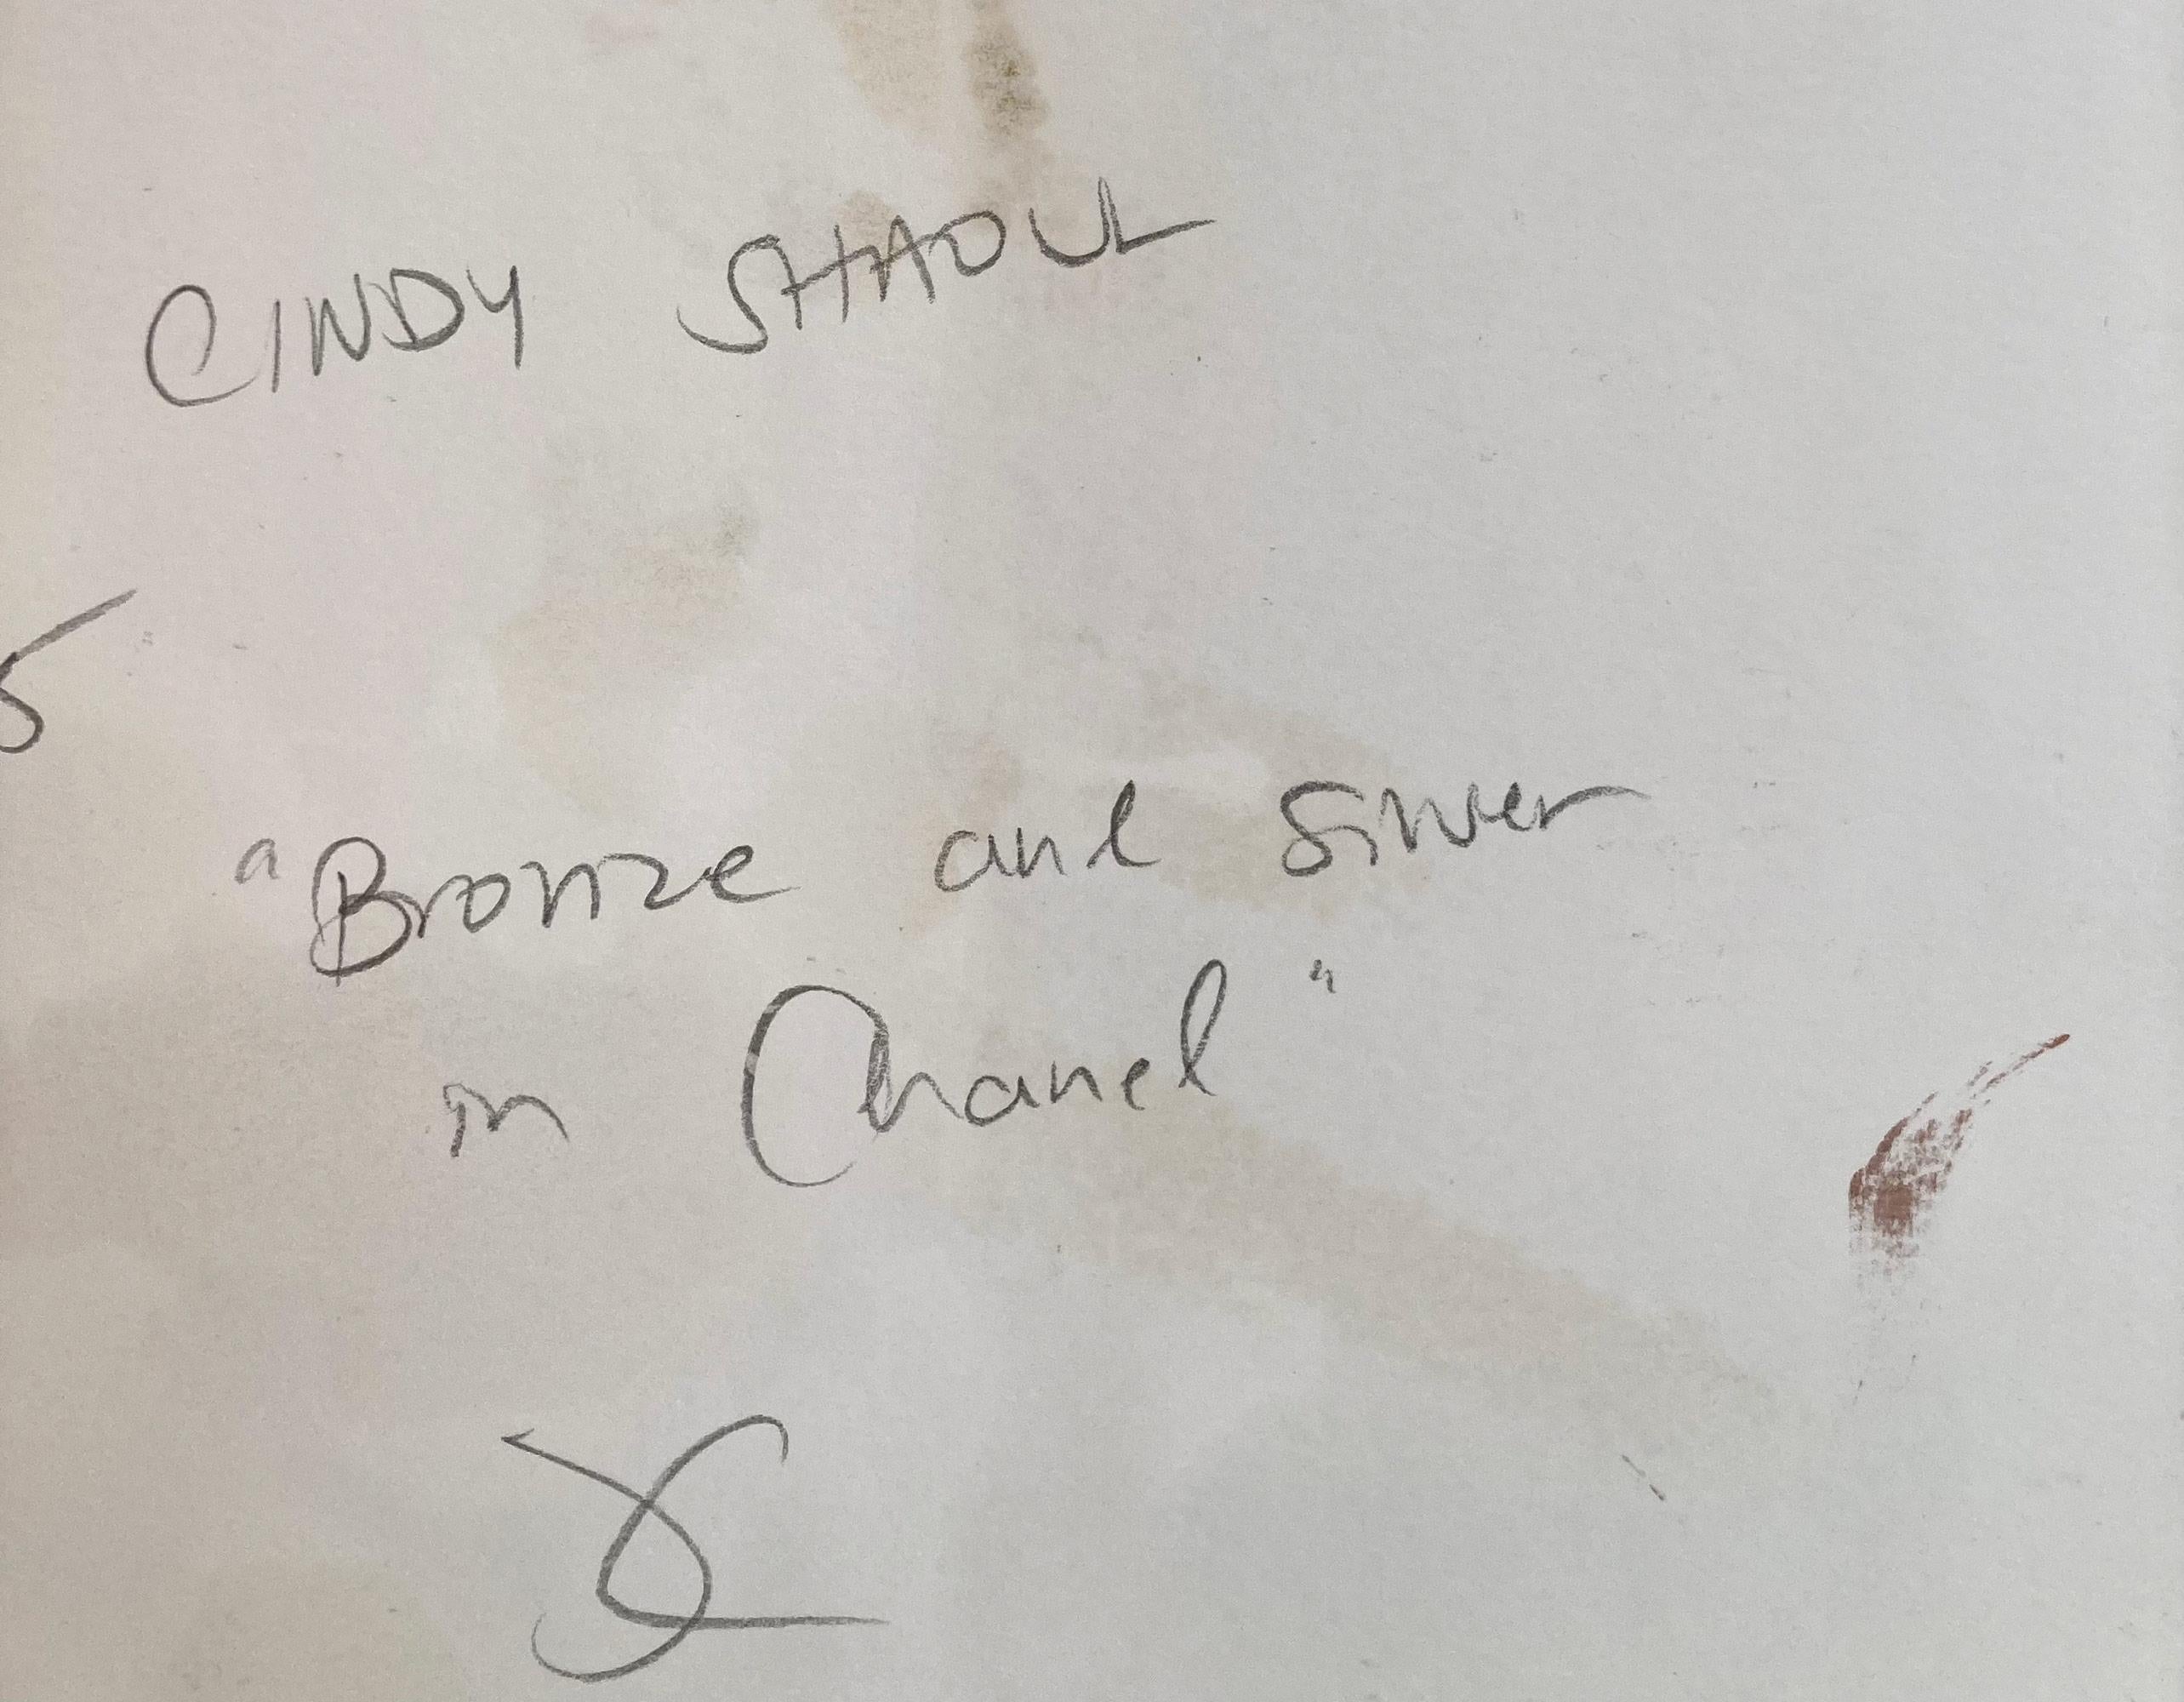 CINDY SHAOUL
5
"Bronze and Silver
in Chanel"